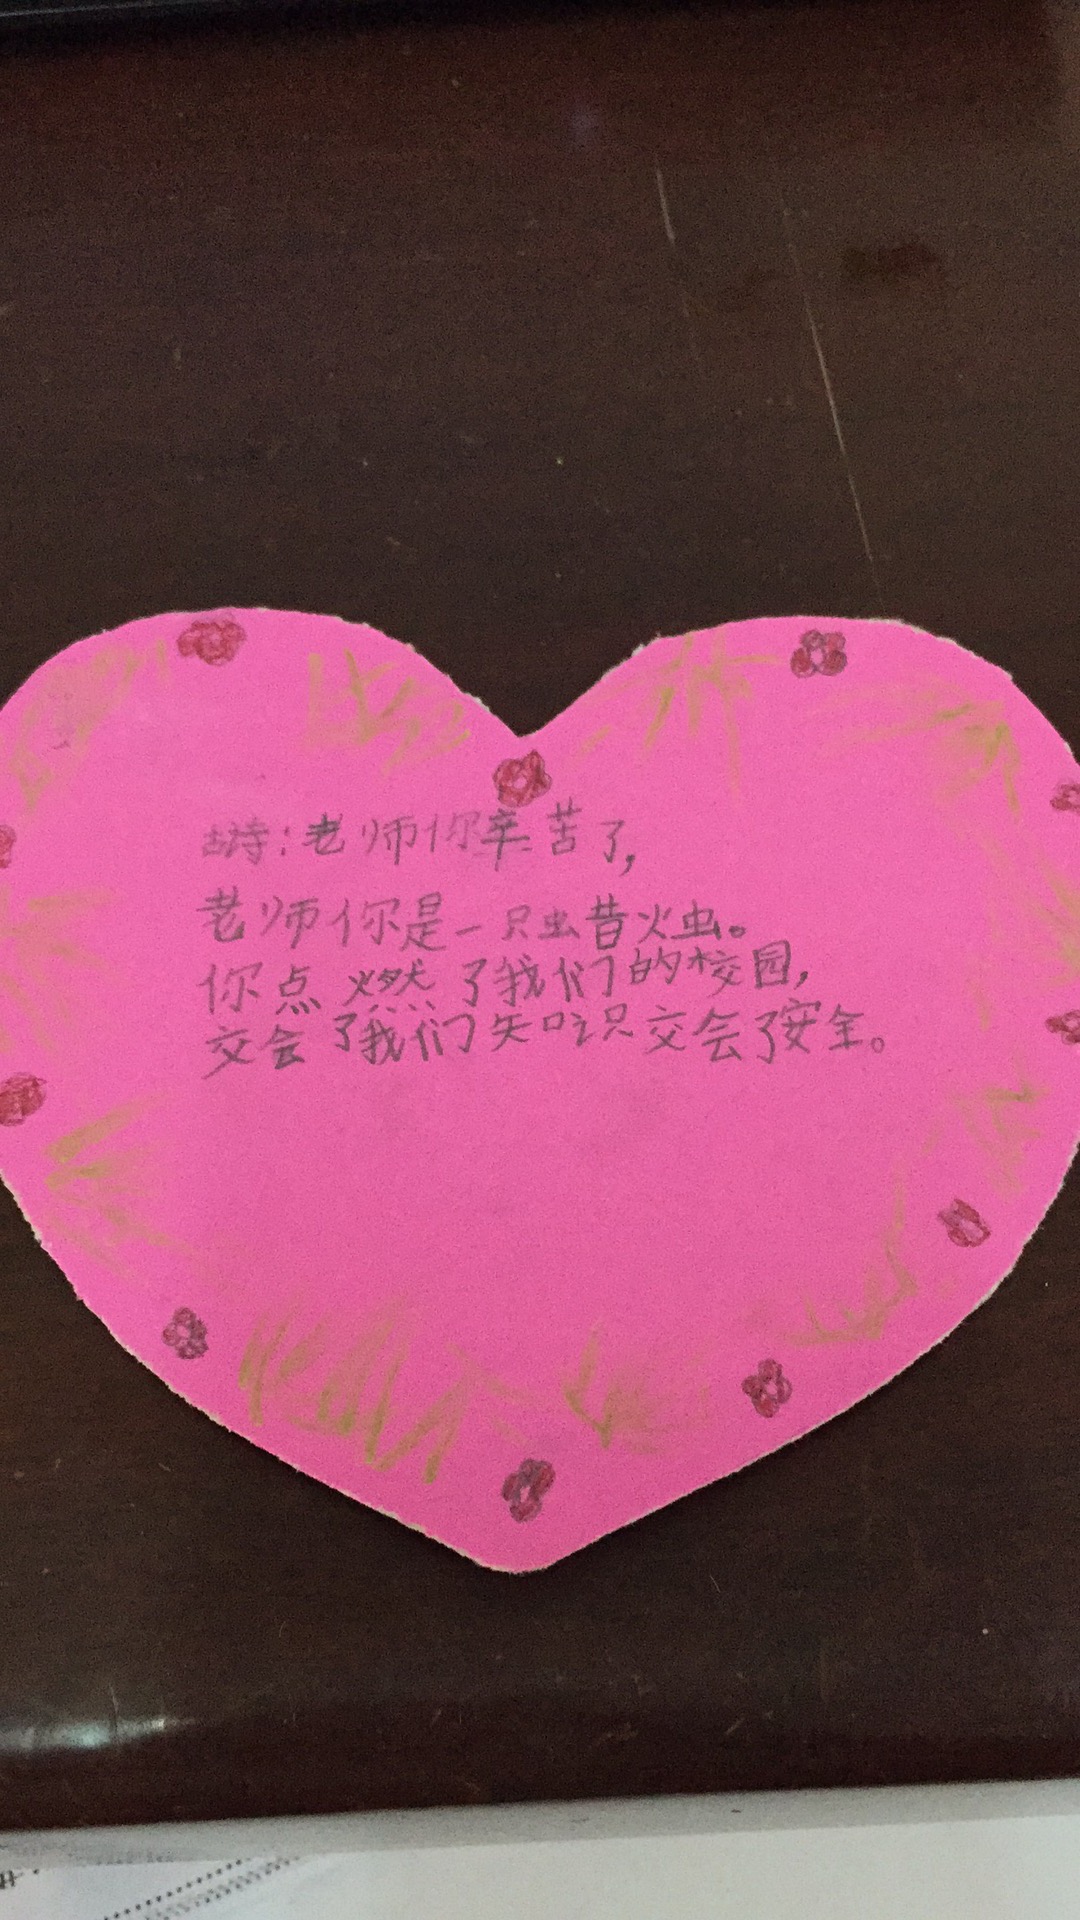 古诗:老师你辛苦了,
老师你是一只蜡火虫。
你点燃了我们的校园,
交会了我们知识交会了安全。